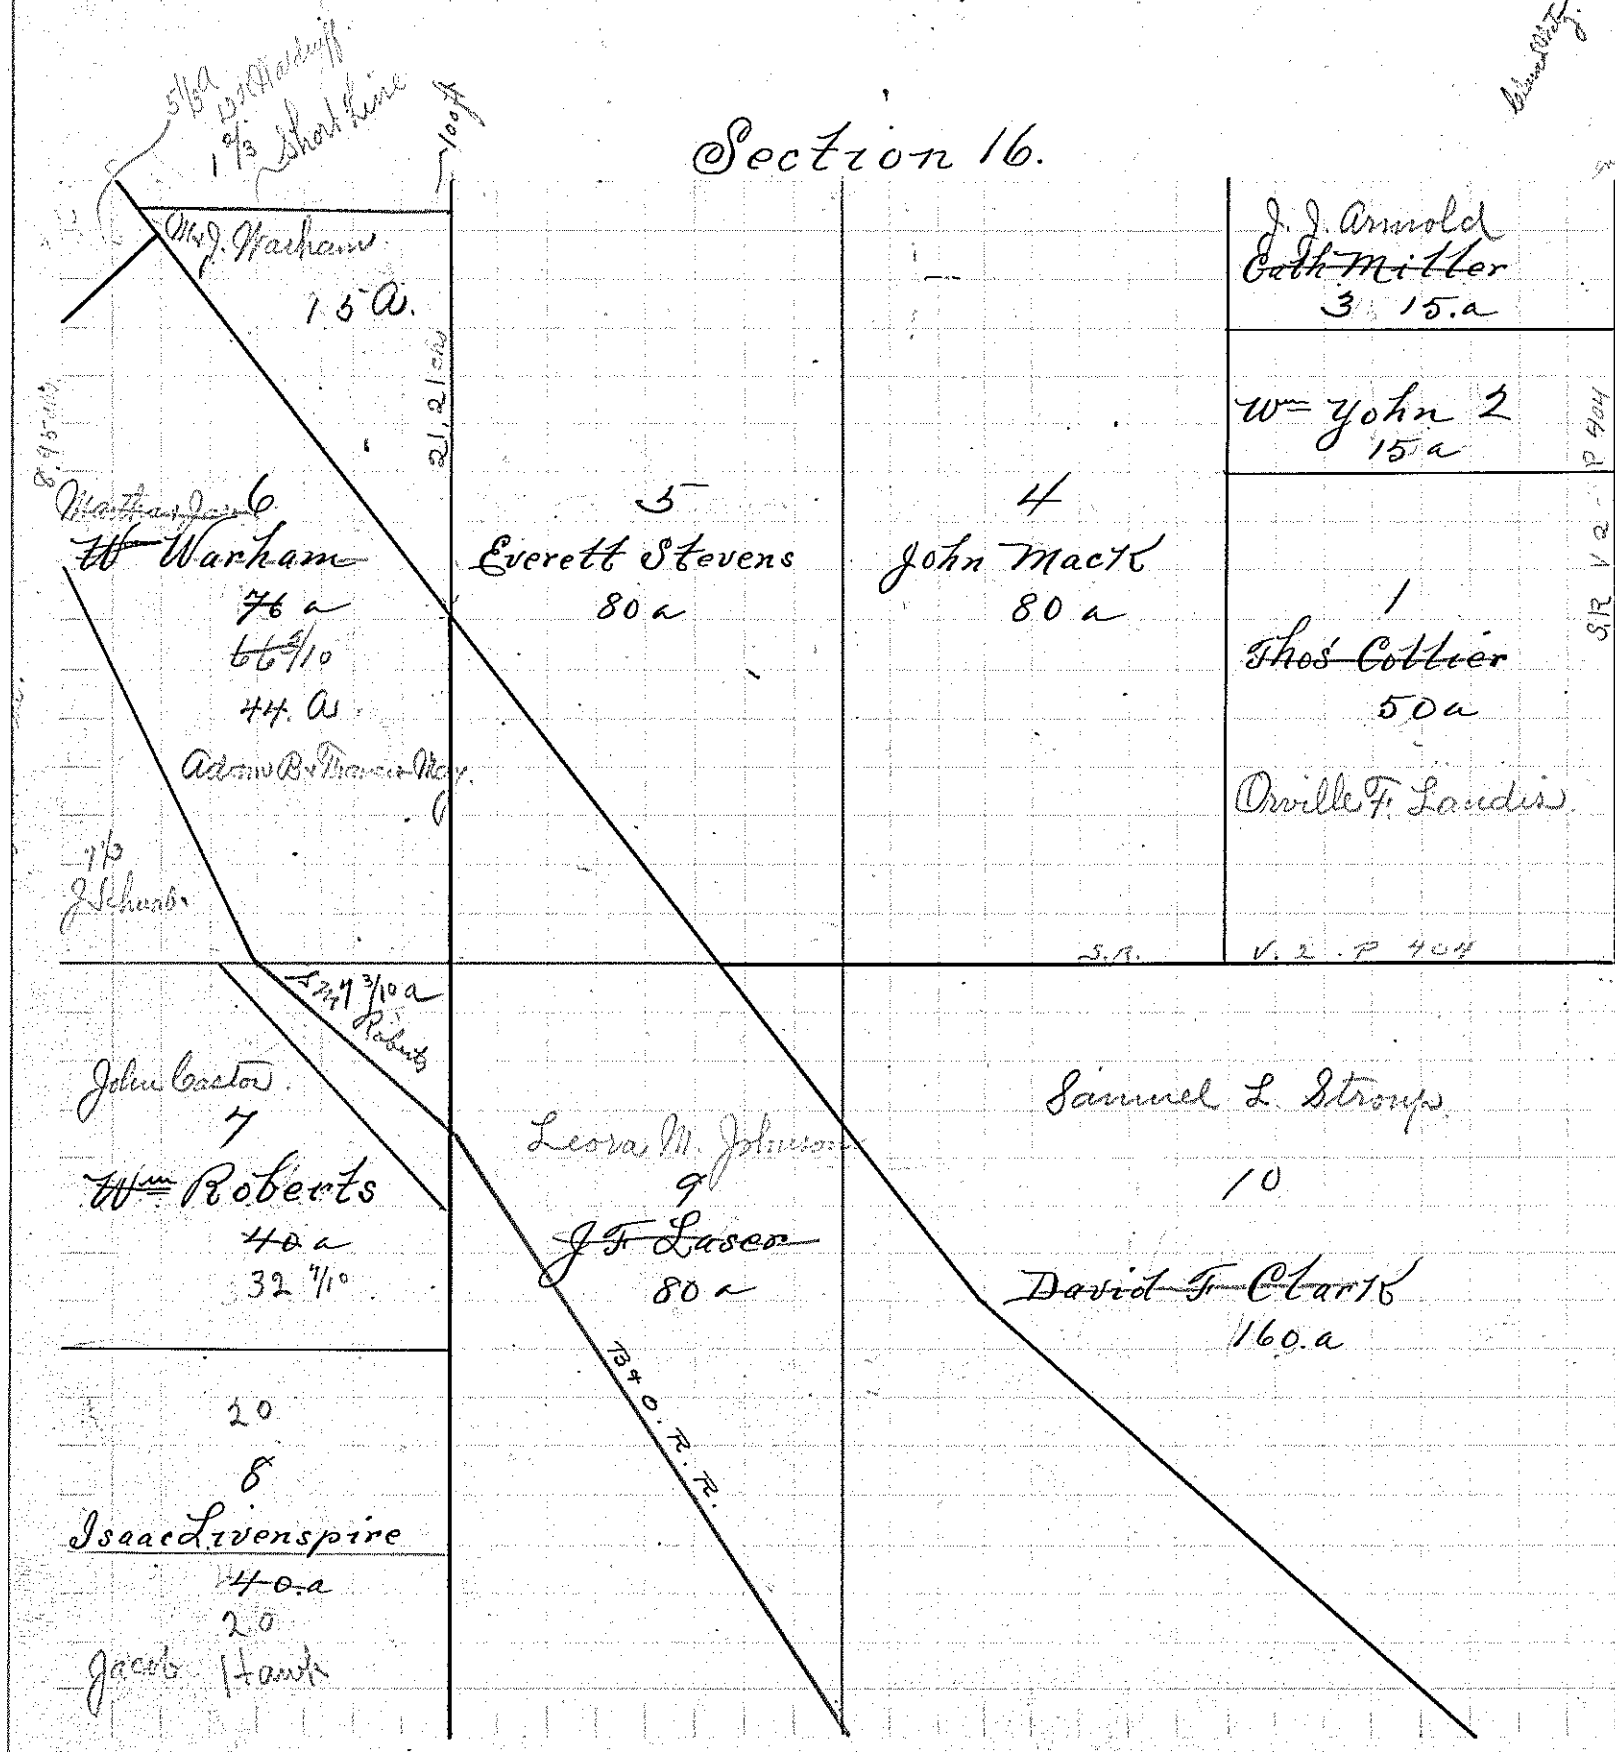 Section 16.
1 2/3 Short Line
100 ft
J. Warham
15 A.
21,21 chs
J. J. Arnold
Cath Miller
3 15.a
Wm Yohn 2
15 a
P 404
S.R. V 2
6
W Warham
76 a
66 5/10
44. A
5
Everett Stevens
80 a
4
John Mack
80 a
1
Thos Collier
50 a
Orville F. Landis.
S.R. V. 2. P 404
3/10 a
Roberts
John Castor.
7
Wm Roberts
40 a
32 7/10
Leora M. Johnson
9
J F Laser
80 a
Samuel L. Stroup.
10
David F Clark
160.a
B & O. R. R.
20
8
Isaac Livenspire
40.a
20
Jacob Hawk